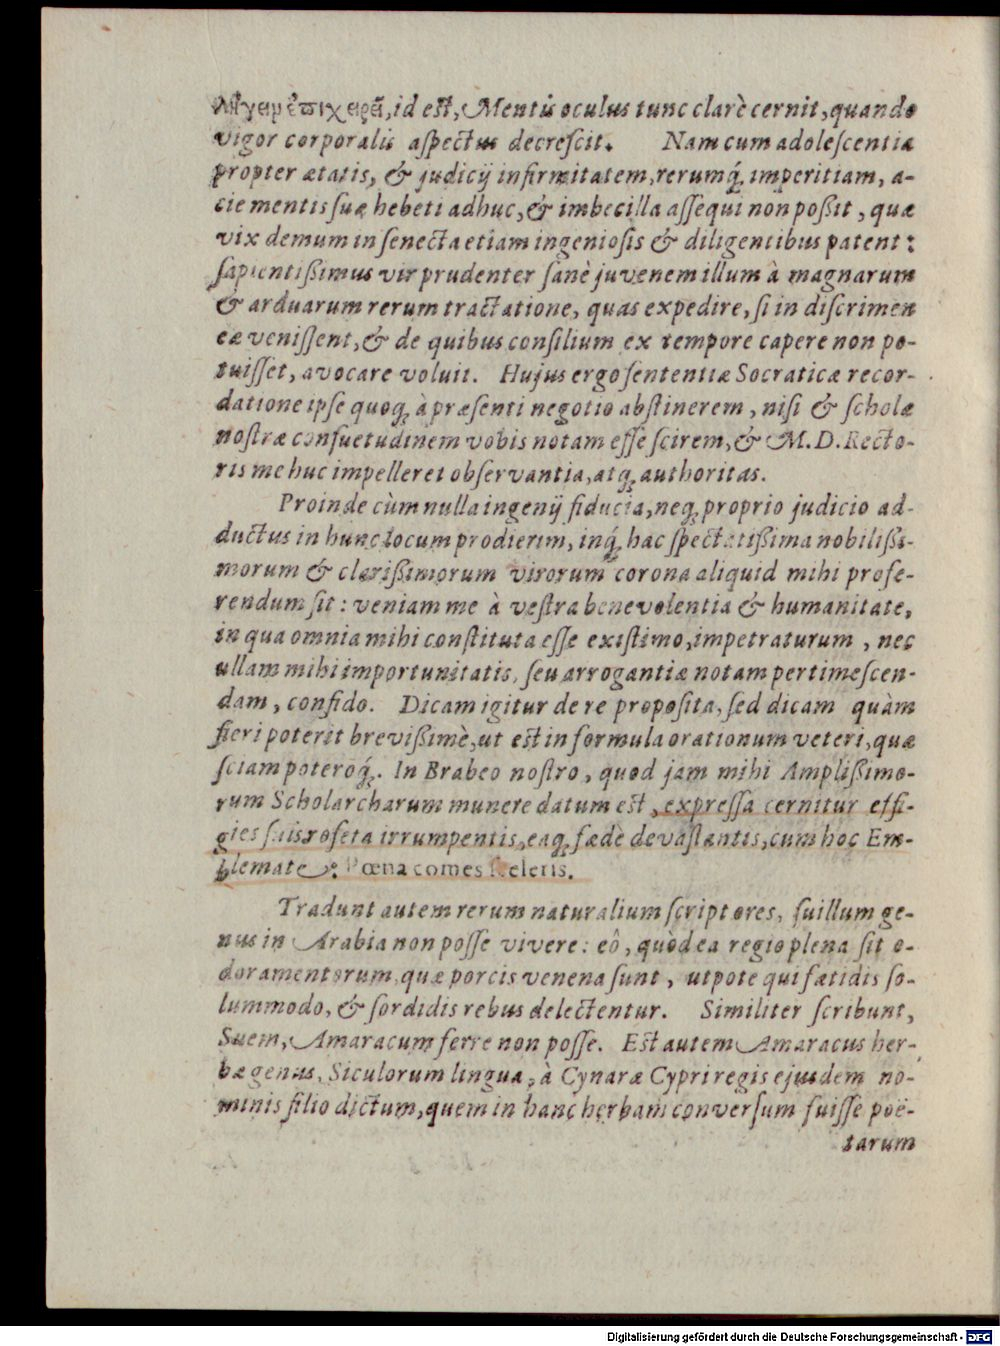 λήγειν ἐπιχειρεῖ, id est, Mentis oculus tunc clarè cernit, quando
vigor corporalis aspectus decrescit. Nam cum adolescentia
propter ætatis, & judicij infirmitatem, rerumq́, imperitiam, a-
cie mentis suæ hebeti adhuc, & imbecilla assequi non poßit, quæ
vix demum in senecta etiam ingeniosis & diligentibus patent:
sapientißimus vir prudenter sanè juvenem illum à magnarum
& arduarum rerum tractatione, quas expedire, si in discrimen
eæ venissent, & de quibus consilium ex tempore capere non po-
tuisset, avocare voluit. Hujus ergo sententiæ Socraticæ recor-
datione ipse quoq, à præsenti negotio abstinerem, nisi & scholæ
nostræ consuetudinem vobis notam esse scirem, & M. D. Recto-
ris me huc impelleret observantia, atq, authoritas.
Proinde cùm nulla ingenij fiducia, neq, proprio judicio ad-
ductus in hunc locum prodierim, inq́, hac spectatißima nobilißi-
morum & clarißimorum virorum corona aliquid mihi profe-
rendum sit: veniam me à vestra benevolentia & humanitate,
in qua omnia mihi constituta esse existimo, impetraturum, nec
ullam mihi importunitatis, seu arrogantiæ notam pertimescen-
dam, confido. Dicam igitur de re proposita, sed dicam quàm
fieri poterit brevißimè, ut est in formula orationum veteri, quæ
sciam poteroq́. In Brabeo nostro, quod jam mihi Amplißimo-
rum Scholarcharum munere datum est, expressa cernitur effi-
gies suis roseta irrumpentis, eaq, fœdè devastantis, cum hoc Em-
blemate: Pœna comes sceleris.
Tradunt autem rerum naturalium scriptores, suillum ge-
nus in Arabia non posse vivere: eô, quod ea regio plena sit o-
doramentorum, quæ porcis venena sunt, utpote qui fœtidis so-
lummodo, & sordidis rebus delectentur. Similiter scribunt,
Suem, Amaracum ferre non posse. Est autem Amaracus her-
bæ genus, Siculorum lingua, à Cynaræ Cypri regis ejusdem no-
minis filio dictum, quem in hanc herbam conversum fuisse poë-
tarum
Digitalisierung gefördert durch die Deutsche Forschungsgemeinschaft - DFG